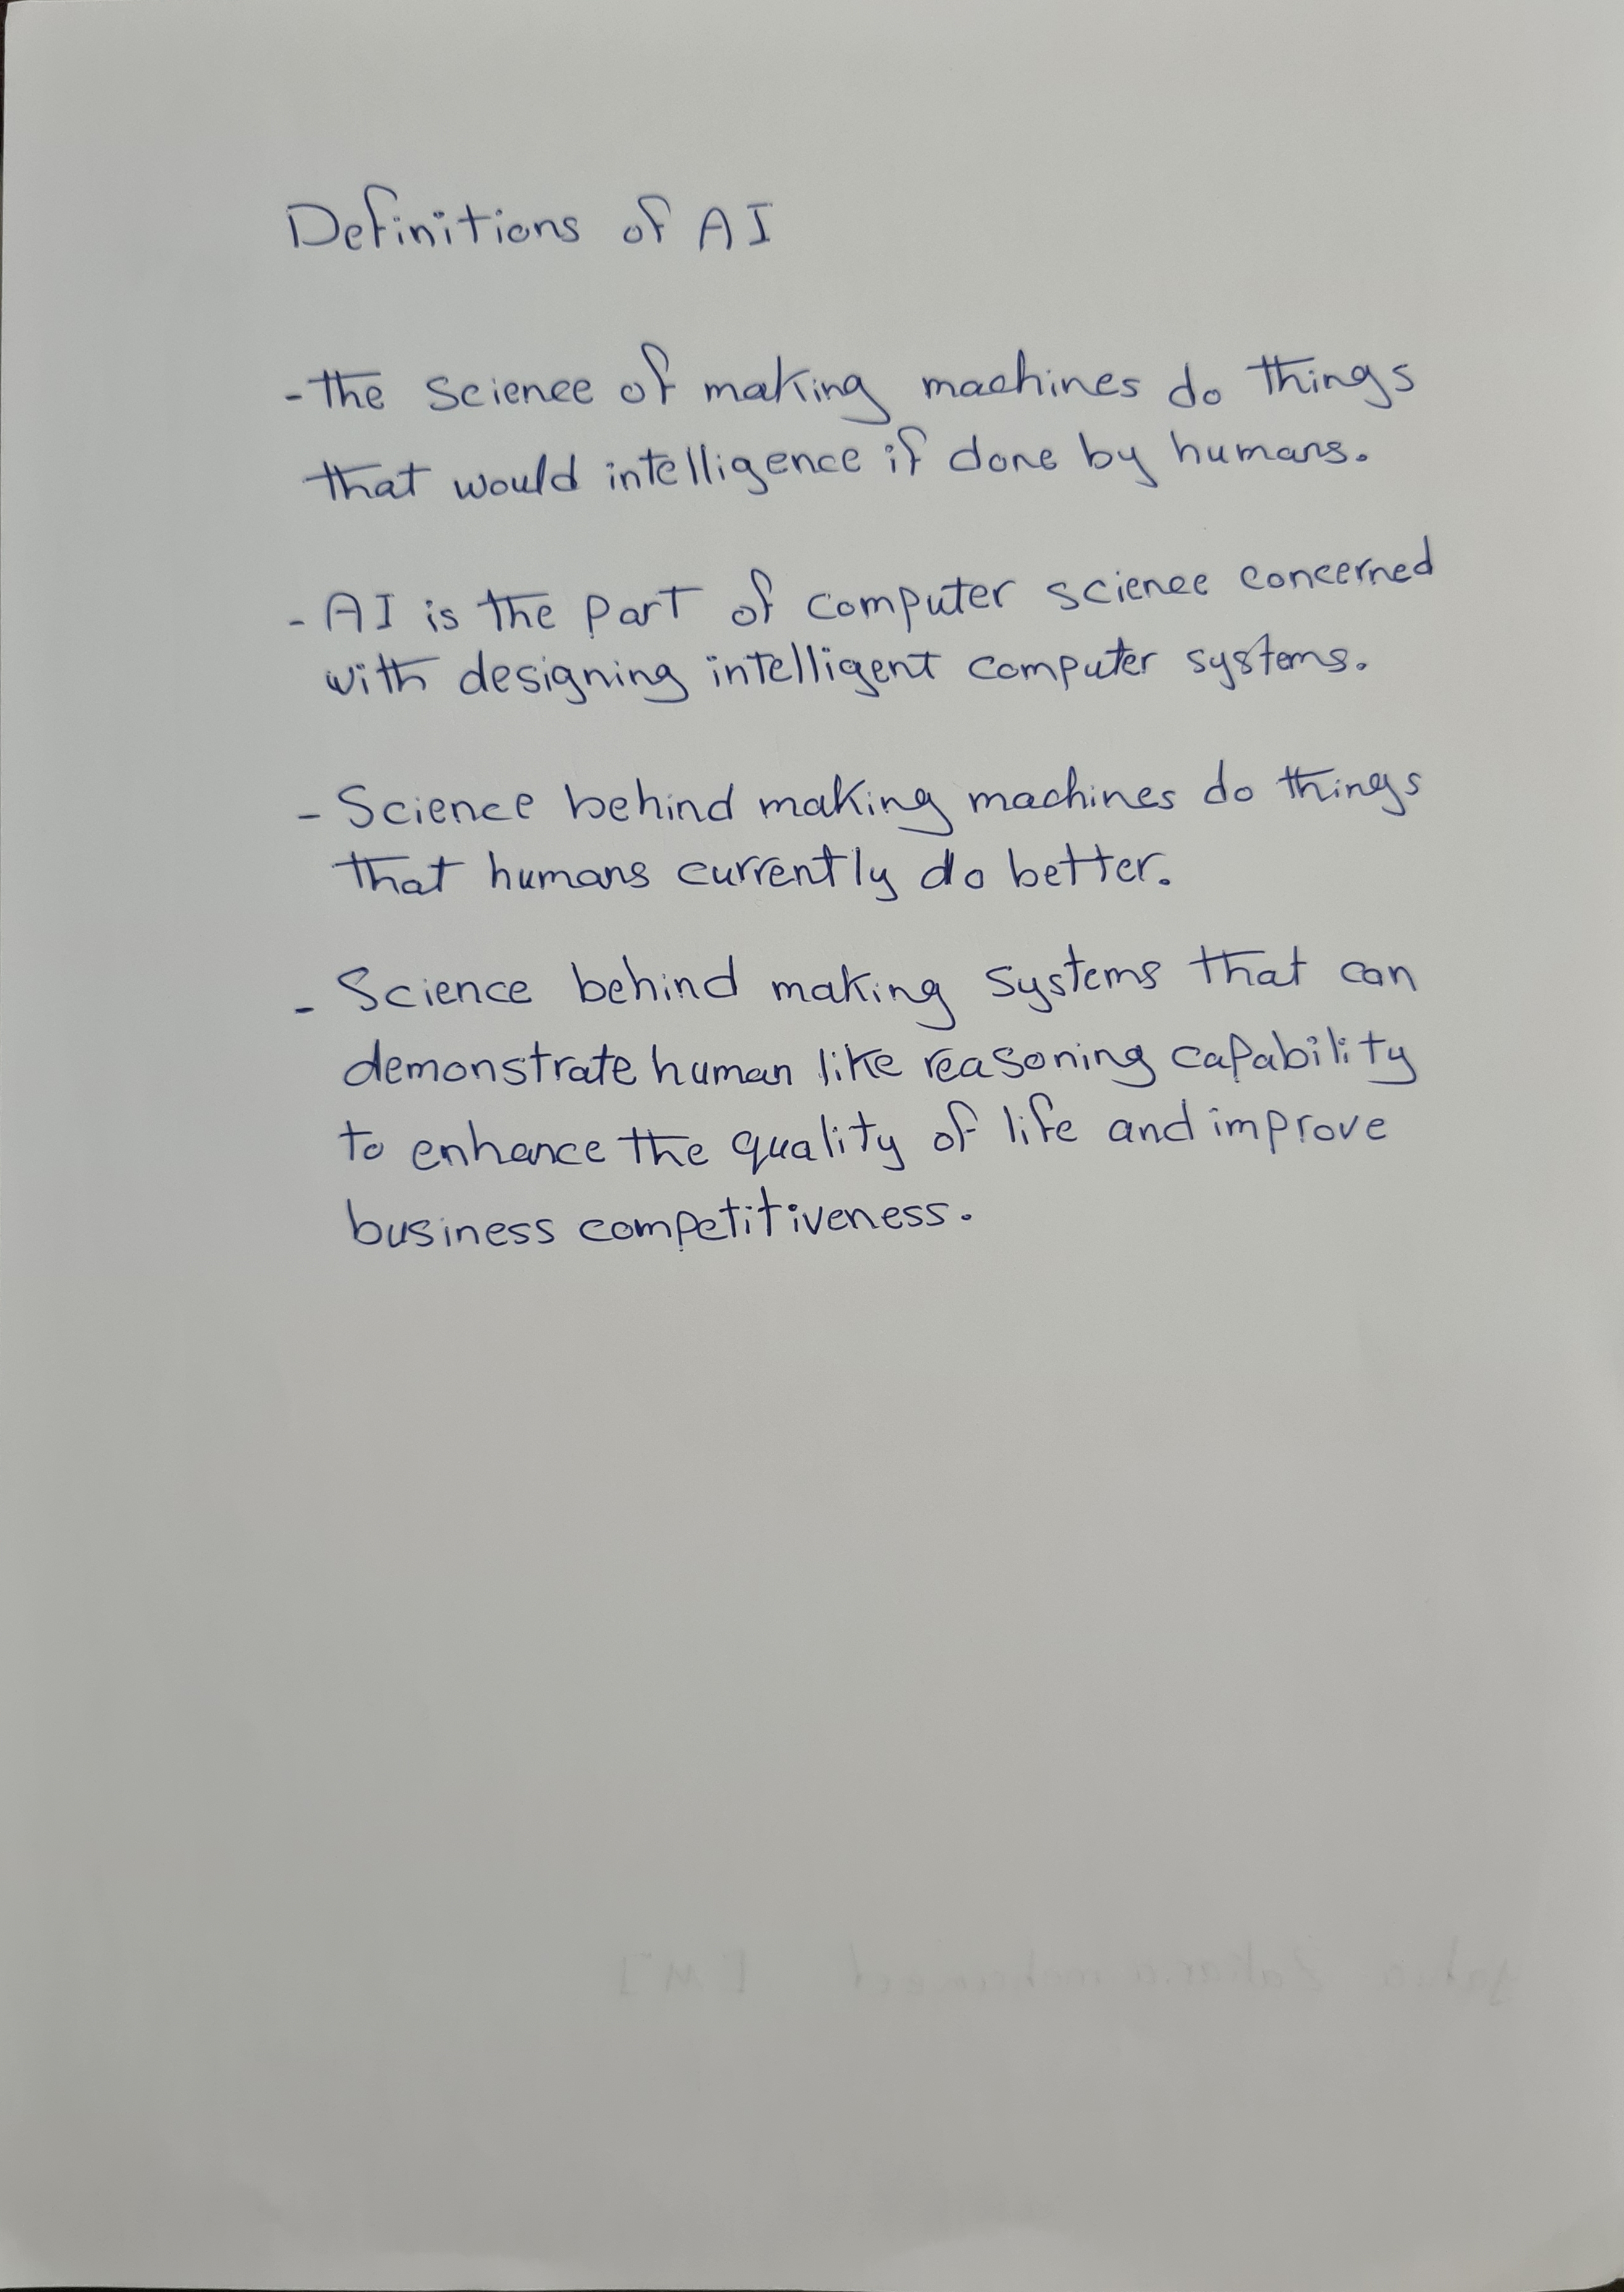 Definitions of AI
- the science of making machines do things
that would intelligence if done by humans.
- AI is the part of computer science concerned
with designing intelligent computer systems.
- Science behind making machines do things
that humans currently do better.
- Science behind making systems that can
demonstrate human like reasoning capability
to enhance the quality of life and improve
business competitiveness.